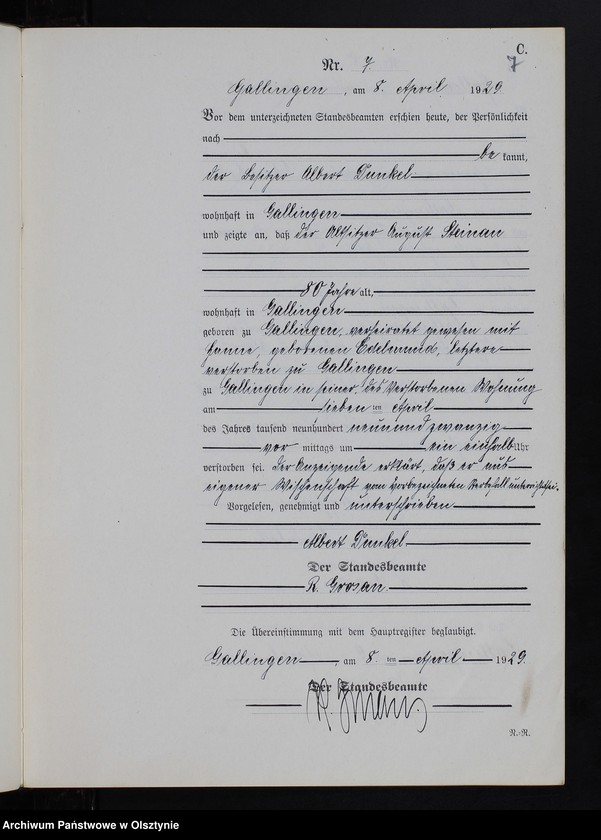 C.
7
Nr. 7
Gallingen, am 8. April 1929
Vor dem unterzeichneten Standesbeamten erschien heute, der Persönlichkeit
nach
bekannt,
der Besitzer Albert Dunkel
wohnhaft in Gallingen
und zeigte an, daß der Altsitzer August Steinau
80 Jahre alt,
wohnhaft in Gallingen
geboren zu Gallingen, verheiratet gewesen mit
Hanne, geborenen Edelmund, letztere
verstorben zu Gallingen
zu Gallingen in seiner, des Verstorbenen Wohnung
am sieben ten April
des Jahres tausend neunhundert neunundzwanzig
vor mittags um ein einhalb Uhr
verstorben sei. Der Anzeigende erklärt, daß er aus
eigener Wissenschaft vom vorbezeichneten Sterbefall unterrichtet sei.
Vorgelesen, genehmigt und unterschrieben
Albert Dunkel
Der Standesbeamte
R.
Die Übereinstimmung mit dem Hauptregister beglaubigt.
Gallingen, am 8 ten April 1929.
Der Standesbeamte
R.
N.-R.
Archiwum Państwowe w Olsztynie